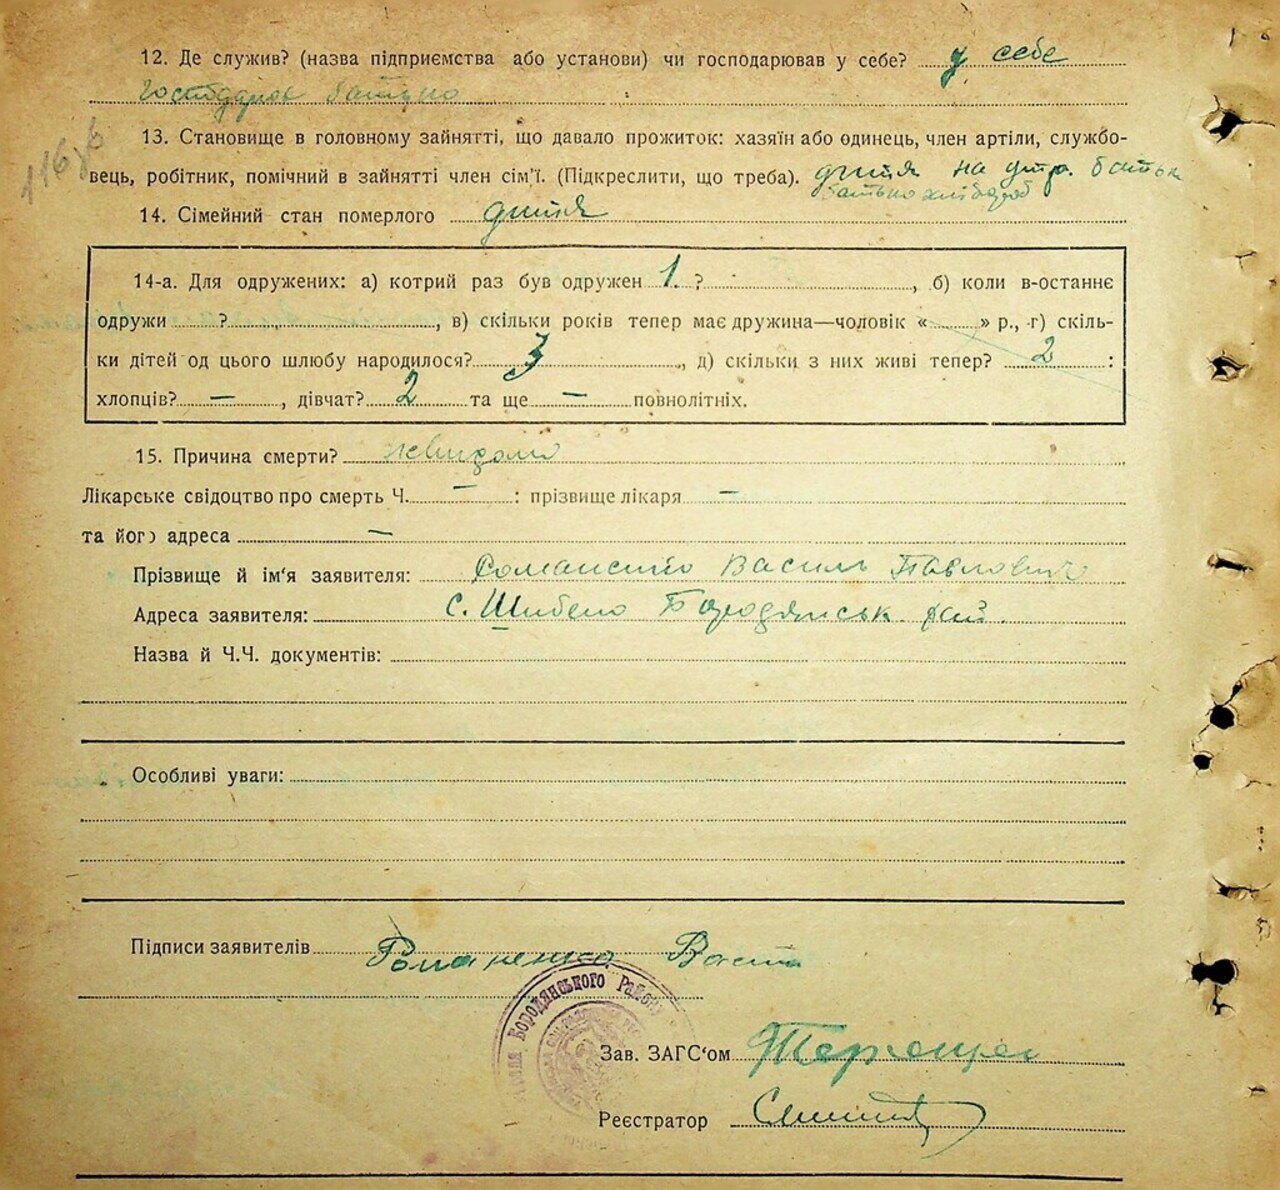 12. Де служив? (назва підприємства або установи) чи господарював у себе? у себе
господарює батько
116
13. Становище в головному зайнятті, що давало прожиток: хазяїн або одинець, член артіли, службо-
вець, робітник, помічний в зайнятті член сім'ї. (Підкреслити, що треба). дитя на утр. батька
батько хлібороб
14. Сімейний стан померлого дитя
14-а. Для одружених: а) котрий раз був одружен 1. ?, б) коли в-останнє
одружи ?, в) скільки років тепер має дружина—чоловік « » р., г) скіль-
ки дітей од цього шлюбу народилося? 3, д) скільки з них живі тепер? 2 :
хлопців? —, дівчат? 2 та ще — повнолітніх.
15. Причина смерти? невідомо
Лікарське свідоцтво про смерть Ч. — : прізвище лікаря —
та його адреса —
Прізвище й ім'я заявителя: Романенко Василь Павлович
Адреса заявителя: с. Шибено Бородянськ. рай.
Назва й Ч.Ч. документів:
Особливі уваги:
Підписи заявителів Романенко
Бородянського Району
Зав. ЗАГС'ом
Реєстратор